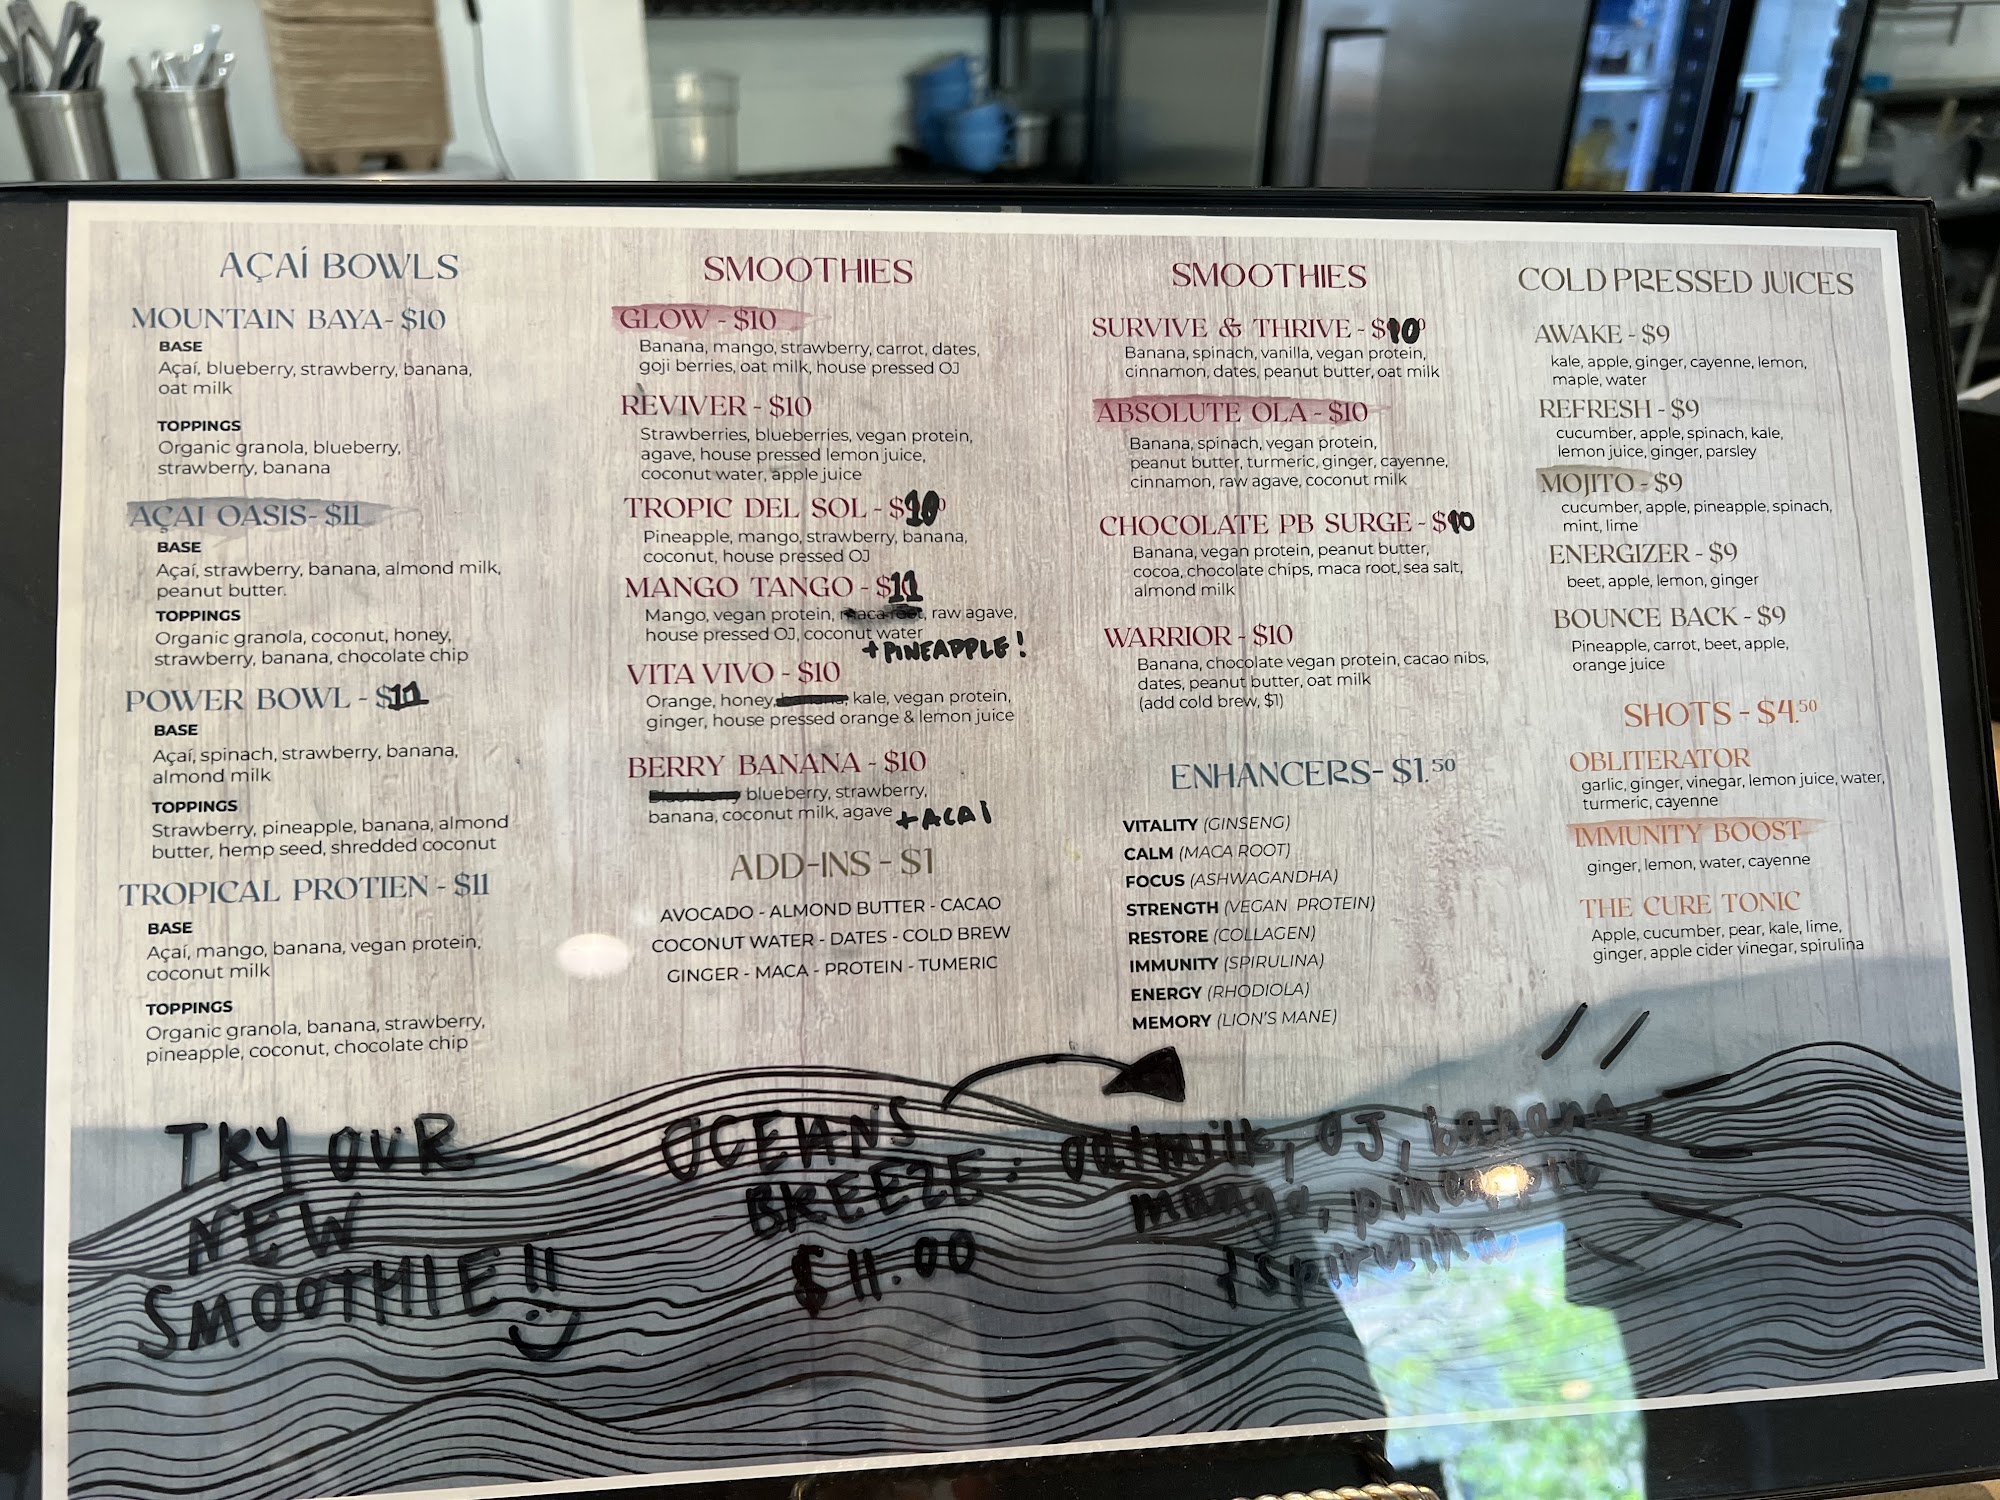 AÇAÍ BOWLS
MOUNTAIN BAYA- $10
BASE
Açaí, blueberry, strawberry, banana,
oat milk
TOPPINGS
Organic granola, blueberry,
strawberry, banana
AÇAI OASIS- $11
BASE
Açaí, strawberry, banana, almond milk,
peanut butter.
TOPPINGS
Organic granola, coconut, honey,
strawberry, banana, chocolate chip
POWER BOWL - $11
BASE
Açaí, spinach, strawberry, banana,
almond milk
TOPPINGS
Strawberry, pineapple, banana, almond
butter, hemp seed, shredded coconut
TROPICAL PROTIEN - $11
BASE
Açaí, mango, banana, vegan protein,
coconut milk
TOPPINGS
Organic granola, banana, strawberry,
pineapple, coconut, chocolate chip
SMOOTHIES
GLOW - $10
Banana, mango, strawberry, carrot, dates,
goji berries, oat milk, house pressed OJ
REVIVER - $10
Strawberries, blueberries, vegan protein,
agave, house pressed lemon juice,
coconut water, apple juice
TROPIC DEL SOL - $10
Pineapple, mango, strawberry, banana,
coconut, house pressed OJ
MANGO TANGO - $11
Mango, vegan protein, maca root, raw agave,
house pressed OJ, coconut water
+ PINEAPPLE!
VITA VIVO - $10
Orange, honey, kale, vegan protein,
ginger, house pressed orange & lemon juice
BERRY BANANA - $10
Blackberry blueberry, strawberry,
banana, coconut milk, agave + ACAI
ADD-INS - $1
AVOCADO - ALMOND BUTTER - CACAO
COCONUT WATER - DATES - COLD BREW
GINGER - MACA - PROTEIN - TUMERIC
SMOOTHIES
SURVIVE & THRIVE - $10
Banana, spinach, vanilla, vegan protein,
cinnamon, dates, peanut butter, oat milk
ABSOLUTE OLA - $10
Banana, spinach, vegan protein,
peanut butter, turmeric, ginger, cayenne,
cinnamon, raw agave, coconut milk
CHOCOLATE PB SURGE - $10
Banana, vegan protein, peanut butter,
cocoa, chocolate chips, maca root, sea salt,
almond milk
WARRIOR - $10
Banana, chocolate vegan protein, cacao nibs,
dates, peanut butter, oat milk
(add cold brew, $1)
ENHANCERS- $1.50
VITALITY (GINSENG)
CALM (MACA ROOT)
FOCUS (ASHWAGANDHA)
STRENGTH (VEGAN PROTEIN)
RESTORE (COLLAGEN)
IMMUNITY (SPIRULINA)
ENERGY (RHODIOLA)
MEMORY (LION'S MANE)
COLD PRESSED JUICES
AWAKE - $9
kale, apple, ginger, cayenne, lemon,
maple, water
REFRESH - $9
cucumber, apple, spinach, kale,
lemon juice, ginger, parsley
MOJITO - $9
cucumber, apple, pineapple, spinach,
mint, lime
ENERGIZER - $9
beet, apple, lemon, ginger
BOUNCE BACK - $9
Pineapple, carrot, beet, apple,
orange juice
SHOTS - $4.50
OBLITERATOR
garlic, ginger, vinegar, lemon juice, water,
turmeric, cayenne
IMMUNITY BOOST
ginger, lemon, water, cayenne
THE CURE TONIC
Apple, cucumber, pear, kale, lime,
ginger, apple cider vinegar, spirulina
TRY OUR
NEW
SMOOTHIE!!
OCEANS
BREEZE:
$11.00
oatmilk, OJ, banana,
mango, pineapple
+ spirulina